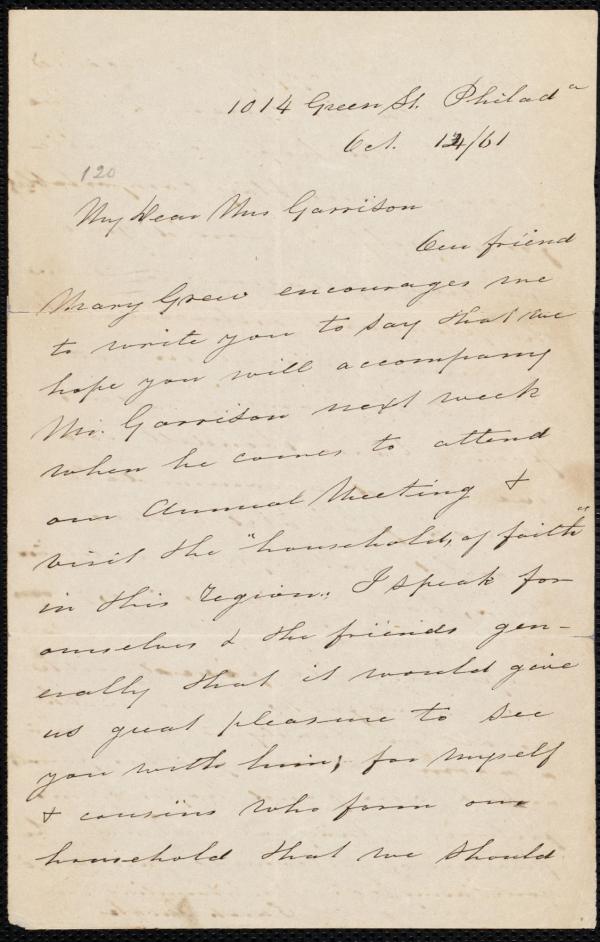 1014 Green St. Philada
Oct. 14/61
120
My Dear Mrs Garrison
Our friend
Mary Grew encourages me
to write you to say that we
hope you will accompany
Mr. Garrison next week
when he comes to attend
our Annual Meeting &
visit the "households of faith"
in this region. I speak for
ourselves & the friends gen-
erally that it would give
us great pleasure to see
you with him; for myself
& cousins who form our
household that we should